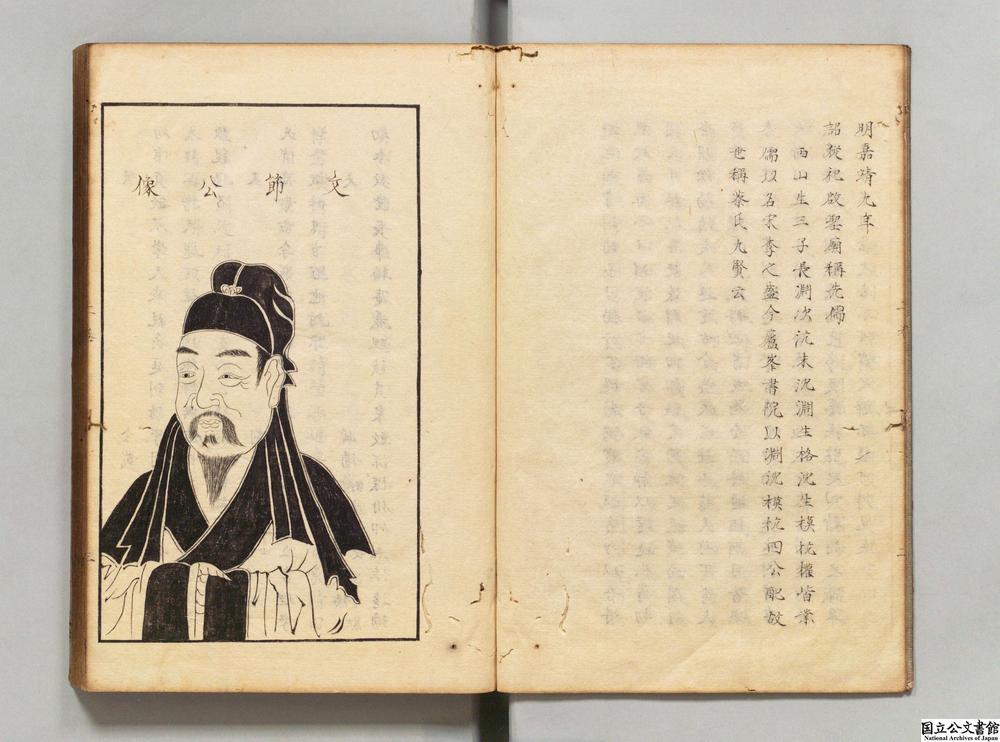 明嘉靖九年
詔從祀啟聖廟稱先儒
西山生三子長淵次沆末沈淵生格沈生模杭權皆業
儒以名宋季之盛今蘆峯書院以淵沈模杭四公配故
世稱蔡氏九賢云
文節公像
国立公文書館
National Archives of Japan